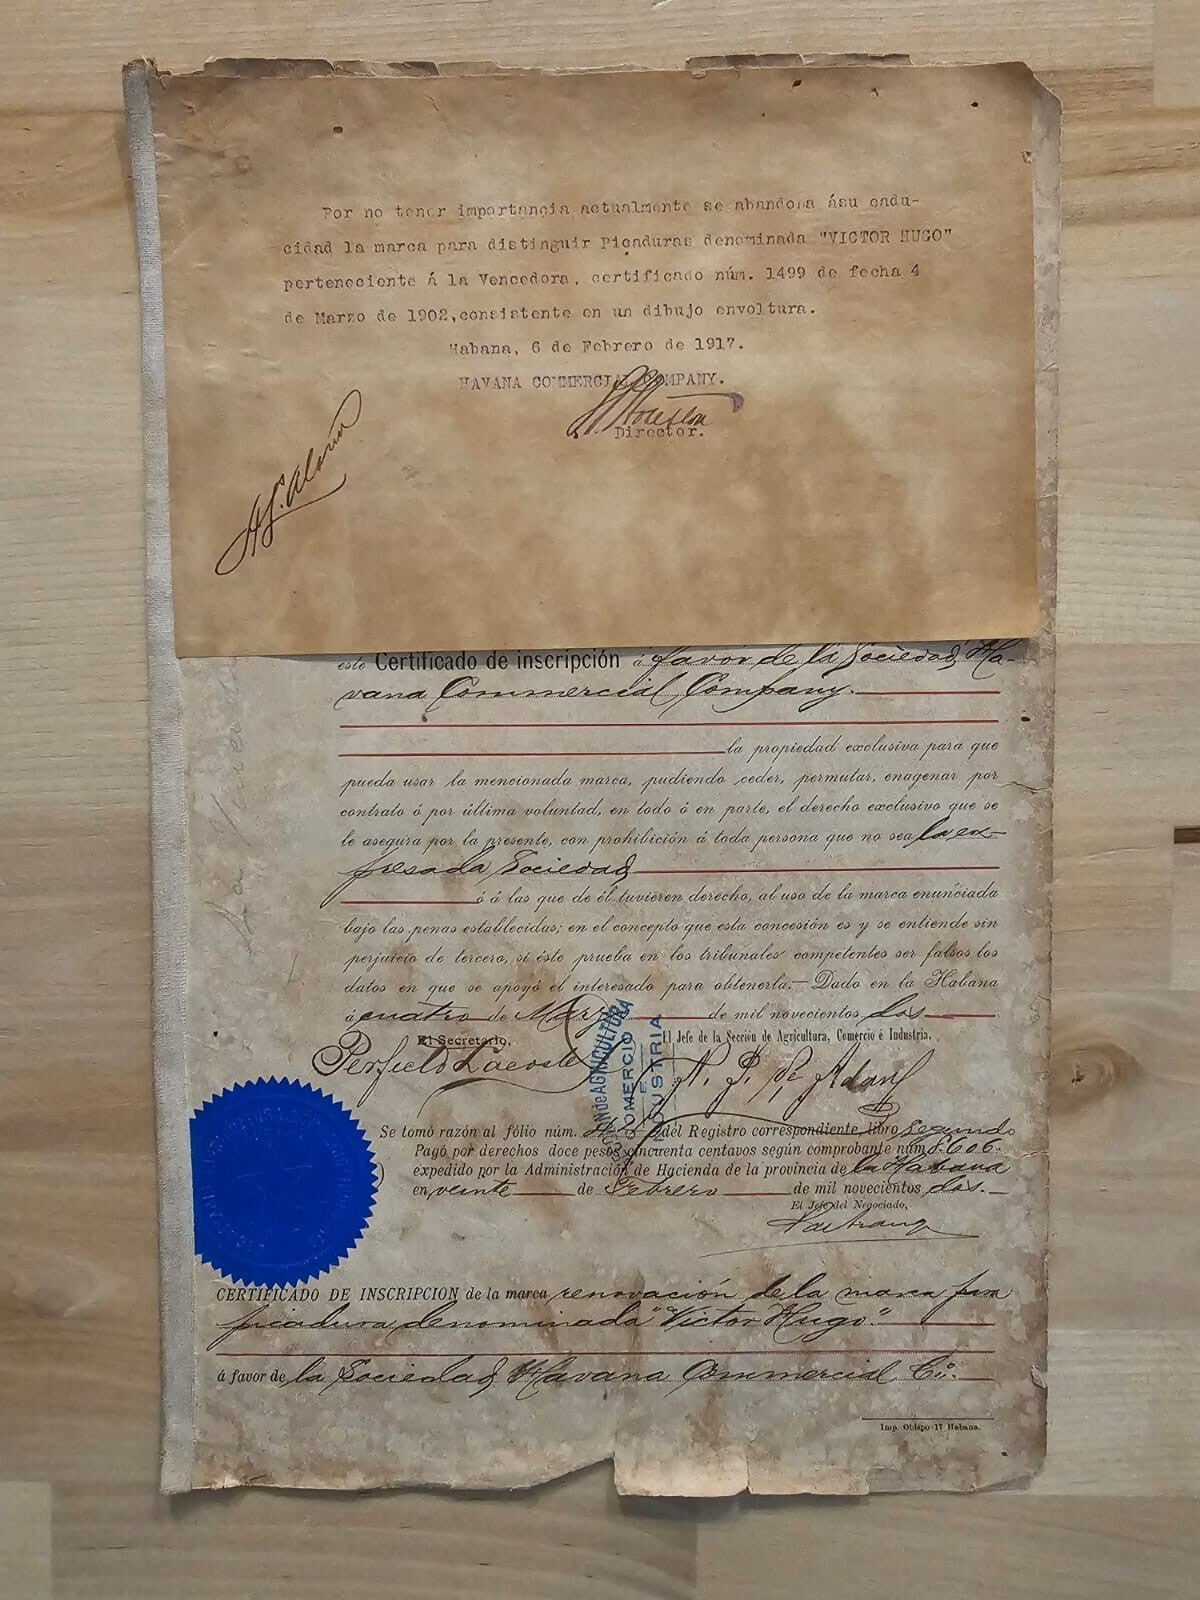 Por no tener importancia actualmente se abandona ásu cadu-
cidad la marca para distinguir Picaduras denominada "VICTOR HUGO"
perteneciente á la Vencedora, certificado núm. 1499 de fecha 4
de Marzo de 1902,consistente en un dibujo envoltura.
Habana, 6 de Febrero de 1917.
HAVANA COMMERCIAL COMPANY.
Director.
este Certificado de inscripción á favor de la Sociedad Ha-
vana Commercial Company.
la propiedad exclusiva para que
pueda usar la mencionada marca, pudiendo ceder, permutar, enagenar por
contrato ó por última voluntad, en todo ó en parte, el derecho exclusivo que se
le asegura por la presente, con prohibición á toda persona que no sea la ex-
presada Sociedad
ó á las que de él tuvieren derecho, al uso de la marca enunciada
bajo las penas establecidas; en el concepto que esta concesión es y se entiende sin
perjuicio de tercero, si éste prueba en los tribunales competentes ser falsos los
datos en que se apoyó el interesado para obtenerla.—Dado en la Habana
á cuatro de Marzo de mil novecientos dos
El Secretario, El Jefe de la Sección de Agricultura, Comercio é Industria,
Perfecto Lacoste
de AGRICULTURA
COMERCIO
INDUSTRIA
Se tomó razón al fólio núm. del Registro correspondiente, libro segundo
Pagó por derechos doce pesos cincuenta centavos según comprobante núm. 8606
expedido por la Administración de Hacienda de la provincia de la Habana
en veinte de Febrero de mil novecientos dos.
El Jefe del Negociado,
CERTIFICADO DE INSCRIPCION de la marca renovación de la marca para
picadura denominada "Victor Hugo."
á favor de la Sociedad Havana Commercial Cº.
Imp. Obispo 17 Habana.